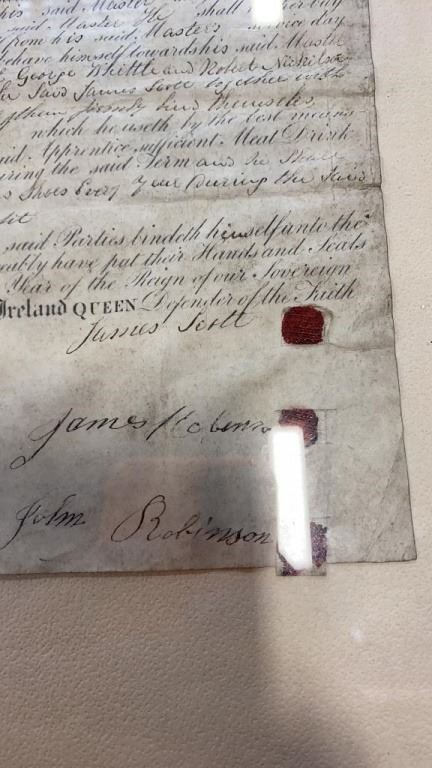 his said Master
said Master He shall neither buy
from his said Masters service day
behave himself towards his said Master
George Whittle and Robert Nicholson
the said James Scott together with
them jointly and themselves
which he useth by the best means
said Apprentice sufficient Meat Drink
during the said Term and he Shall
Shoes Every Year During the Said
said Parties bindeth himself unto the
have put their Hands and Seals
Year of the Reign of our Sovereign
Ireland QUEEN Defender of the Faith
James Scott
James
John Robinson